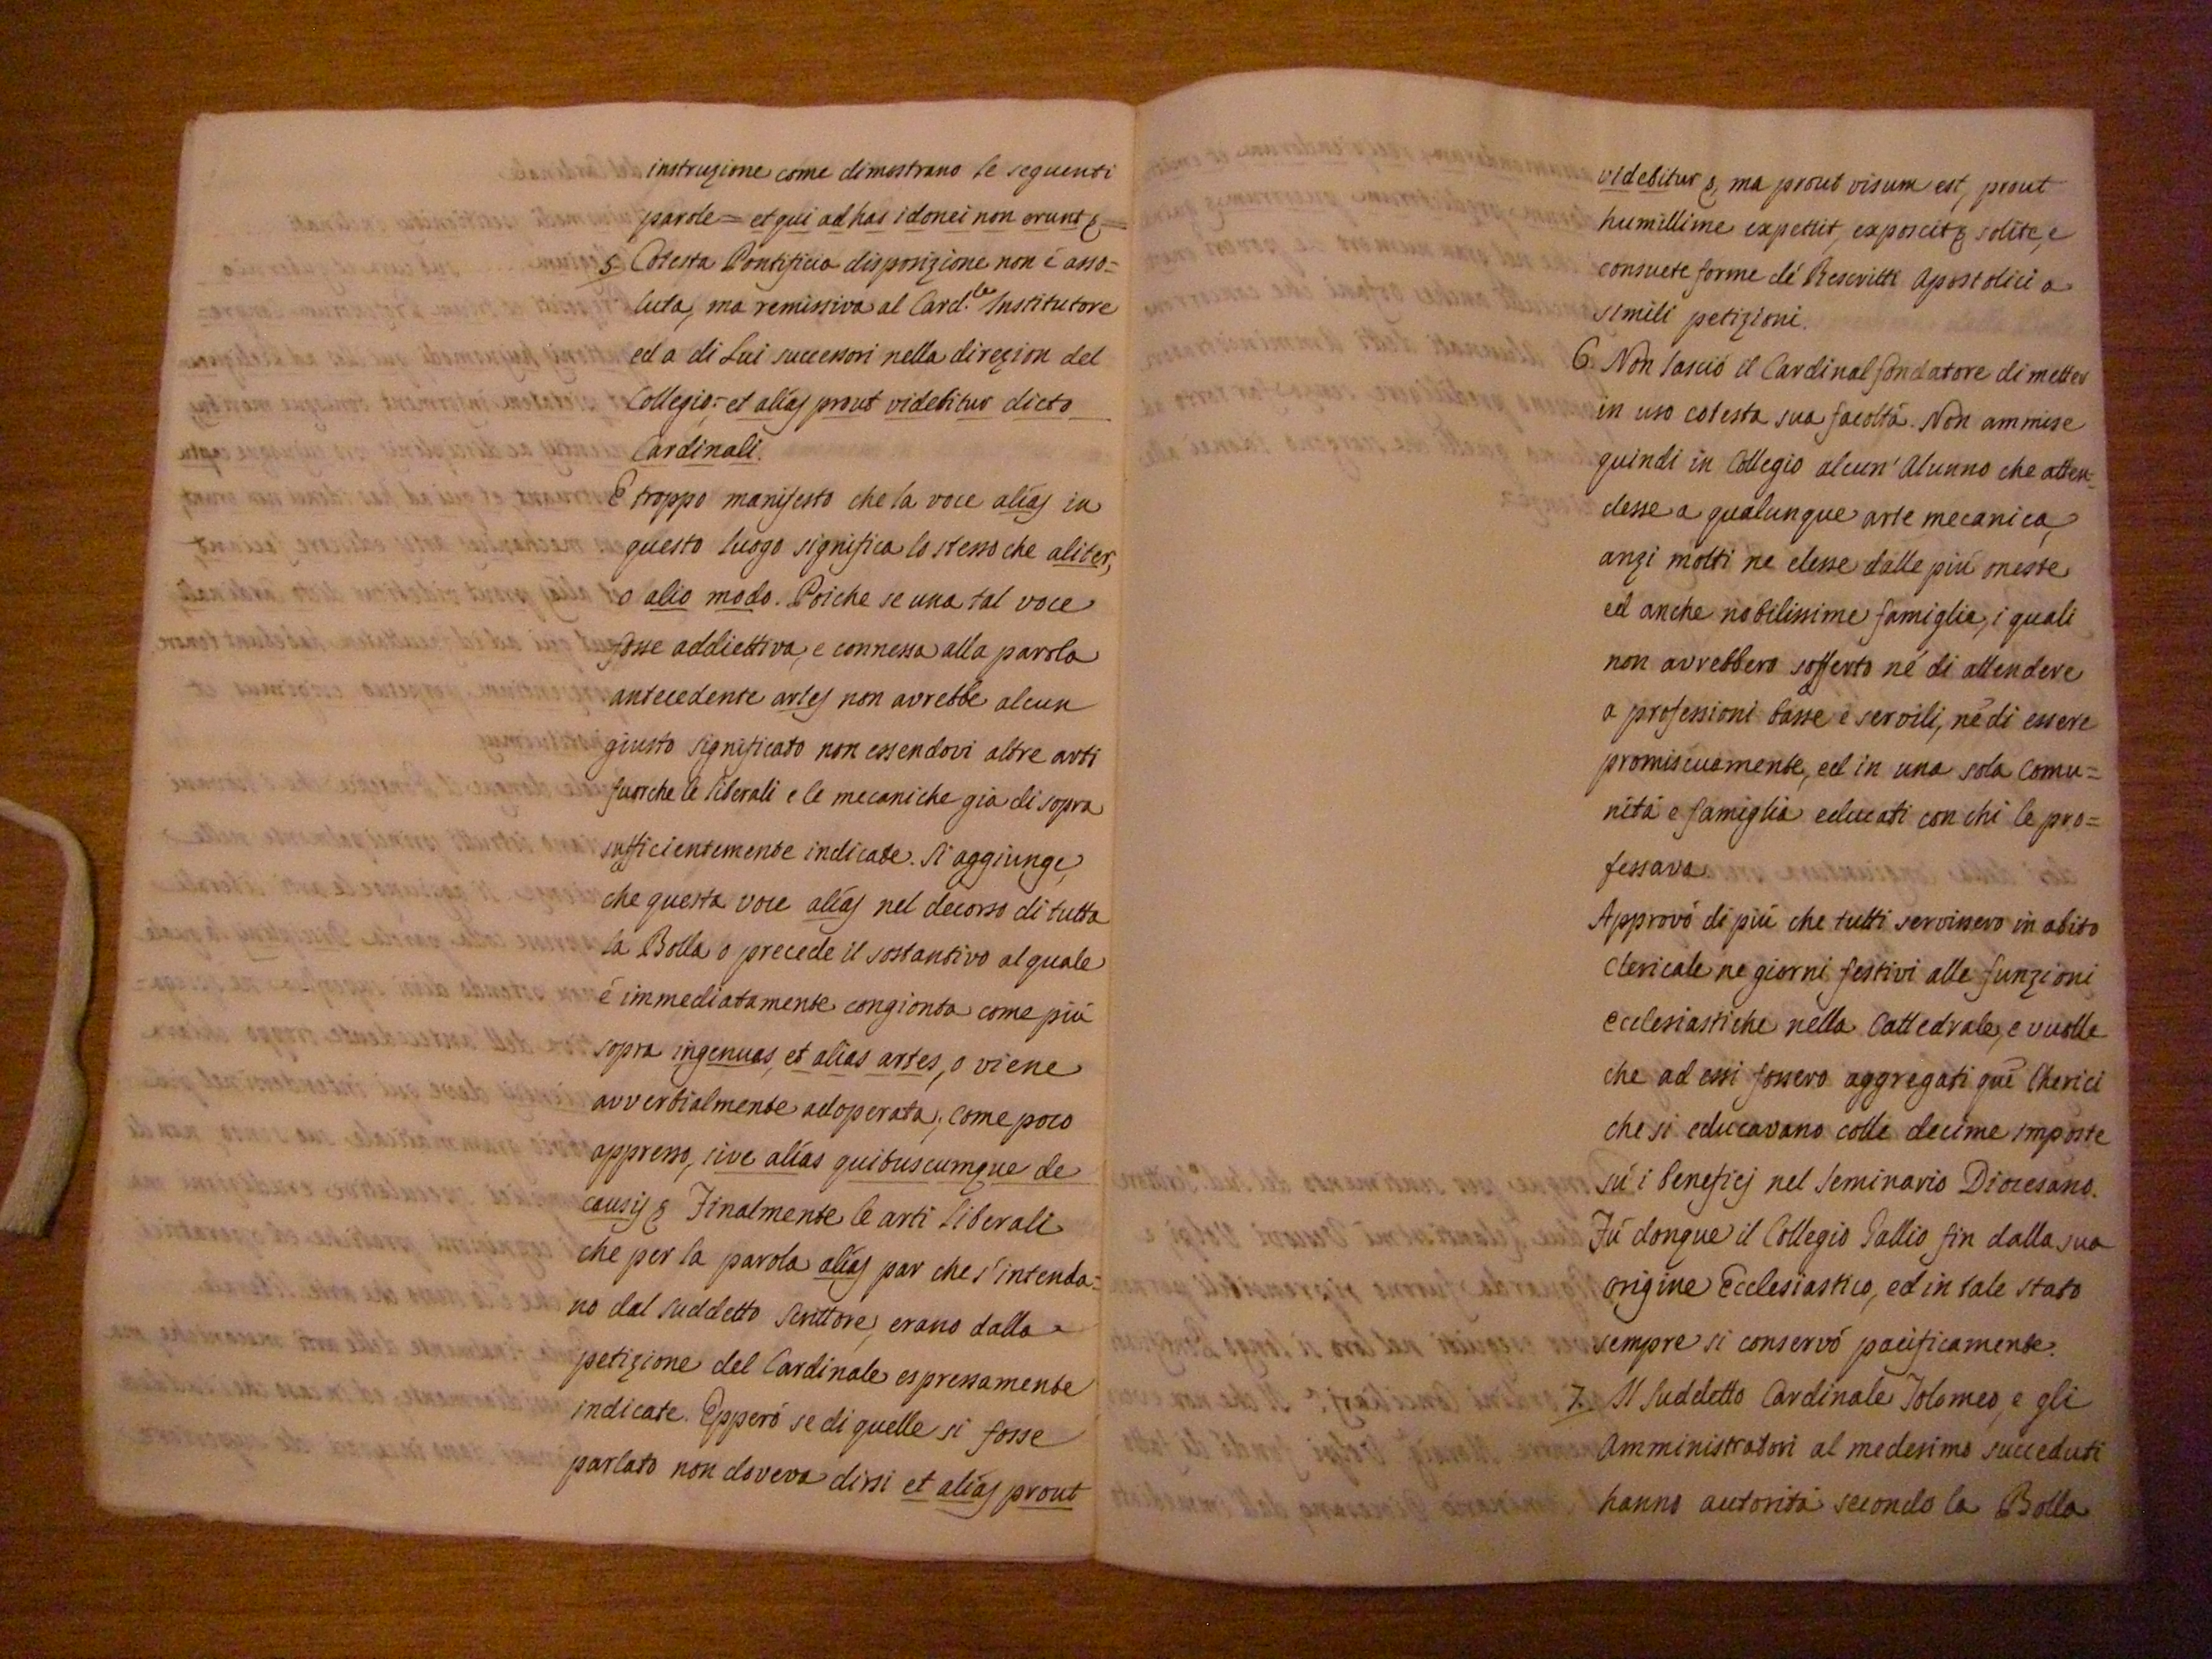 instruzione come dimostrano le seguenti
parole = et qui ad has idonei non erunt &c =
5. Cotesta Pontificia disposizione non é asso=
luta, ma remissiva al Card.le Institutore
ed a di Lui successori nella direzion del
Collegio: et aliàs prout videbitur dicto
Cardinali.
È troppo manifesto che la voce aliàs in
questo luogo significa lo stesso che aliter,
o alio modo. Poiche se una tal voce
fosse addiettiva, e connessa alla parola
antecedente artes non avrebbe alcun
giusto significato non essendovi altre arti
fuorche le liberali e le mecaniche gia di sopra
sufficientemente indicate. Si aggiunge,
che questa voce aliàs nel decorso di tutta
la Bolla o precede il sostantivo al quale
é immediatamente congionta come piú
sopra ingenuas, et alias artes, o viene
avverbialmente adoperata, come poco
appresso, sive aliàs quibuscumque de
causis &c Finalmente le arti liberali
che per la parola aliàs par che s'intenda=
no dal suddetto Scrittore, erano dalla
petizione del Cardinale espressamente
indicate. Epperó se di quelle si fosse
parlato non doveva dirsi et aliàs prout
videbitur &c, ma prout visum est, prout
humillime expetiit, exposcit &c solite, e
consuete forme dé Rescritti Apostolici a
simili petizioni.
6. Non lasció il Cardinal fondatore di metter
in uso cotesta sua facoltá. Non ammise
quindi in Collegio alcun' Alunno che atten=
desse a qualunque arte mecanica,
anzi molti ne elesse dalle piú oneste
ed anche nobilissime famiglie, i quali
non avrebbero sofferto né di attendere
a professioni basse e servili, né di essere
promiscuamente, ed in una sola Comu=
nitá e famiglia educati con chi le pro=
fessava
Approvó di piú che tutti servissero in abito
Clericale ne giorni festivi alle funzioni
ecclesiastiche nella Cattedrale, e vuolle
che ad essi fossero aggregati qué Cherici
che si educavano colle decime imposte
sú i Beneficj nel Seminario Diocesano.
Fú donque il Collegio Gallio fin dalla sua
origine Ecclesiastico, ed in tale stato
sempre si conservó pacificamente.
7. Il Suddetto Cardinale Tolomeo, e gli
Amministratori al medesimo succeduti
hanno autoritá secondo la Bolla